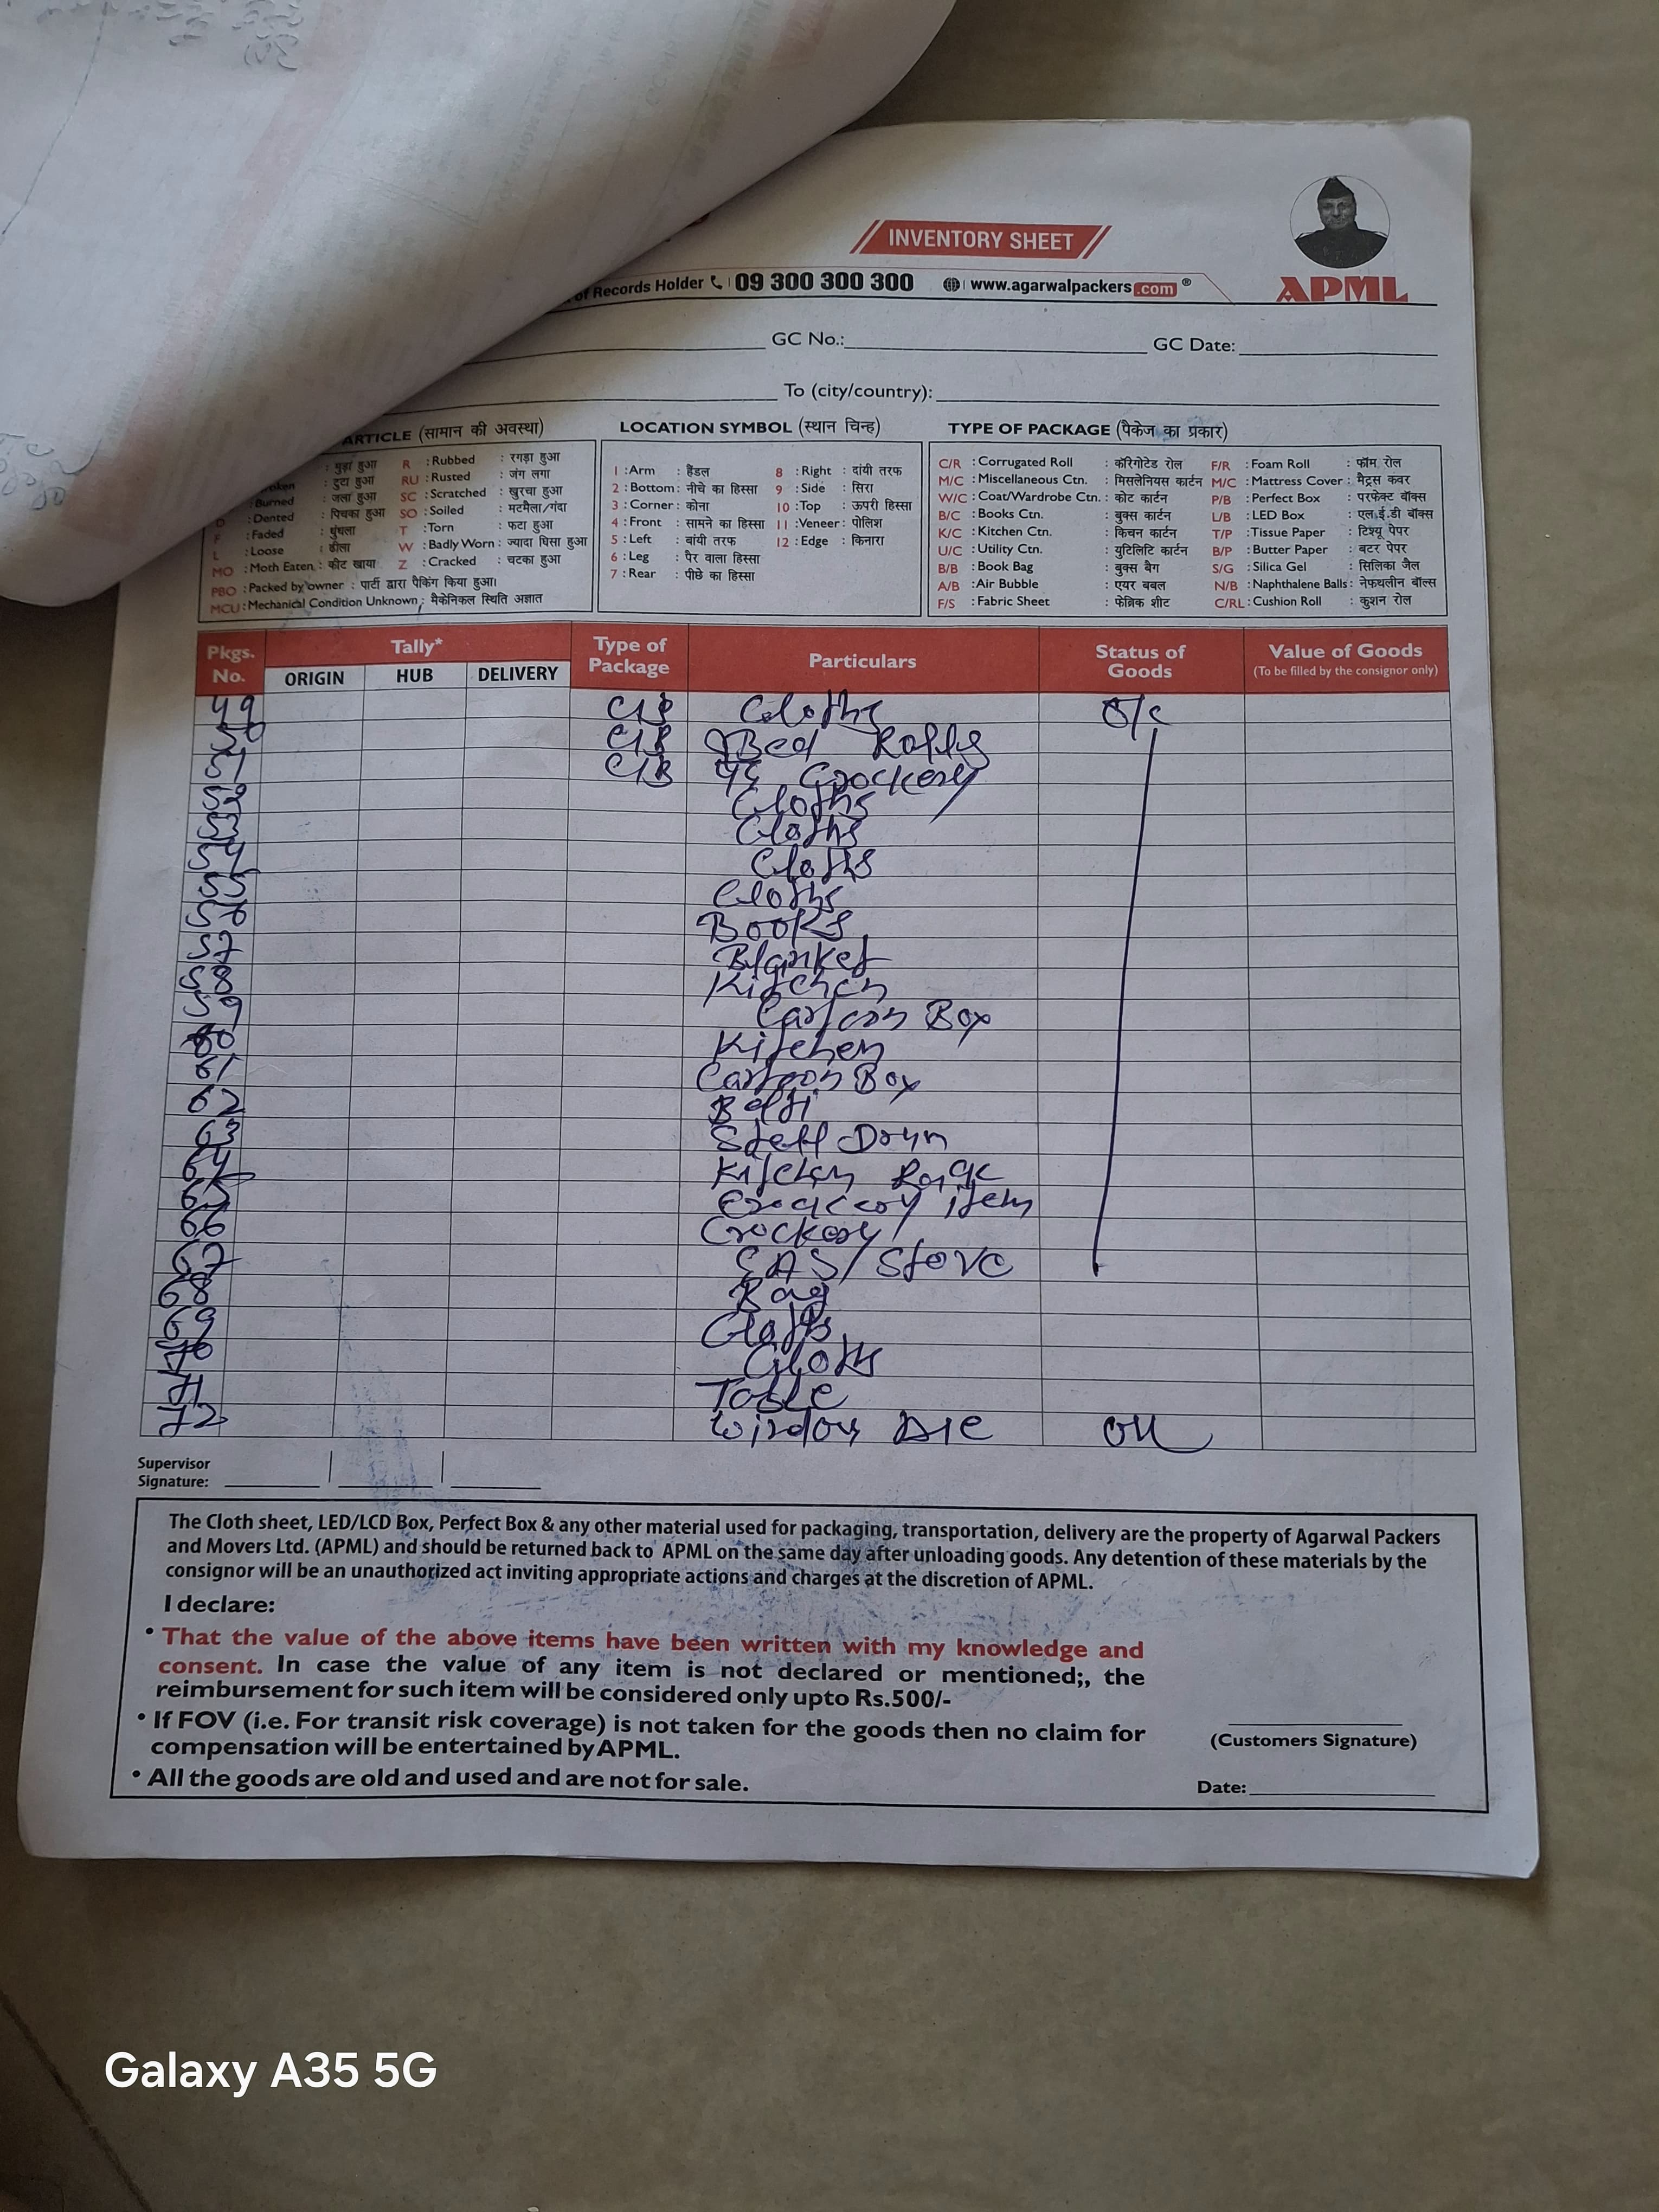 INVENTORY SHEET
of Records Holder 09 300 300 300 www.agarwalpackers.com ®
APML
GC No.: GC Date:
To (city/country):
ARTICLE (सामान की अवस्था)
: मुड़ा हुआ R : Rubbed : रगड़ा हुआ
: टुटा हुआ RU : Rusted : जंग लगा
: Burned : जला हुआ SC : Scratched : खुरचा हुआ
D : Dented : पिचका हुआ SO : Soiled : मटमैला/गंदा
F : Faded : धुंधला T : Torn : फटा हुआ
L : Loose : ढीला W : Badly Worn : ज्यादा घिसा हुआ
MO : Moth Eaten : कीट खाया Z : Cracked : चटका हुआ
PBO : Packed by owner : पार्टी द्वारा पैकिंग किया हुआ।
MCU : Mechanical Condition Unknown : मैकेनिकल स्थिति अज्ञात
LOCATION SYMBOL (स्थान चिन्ह)
1 : Arm : हैंडल 8 : Right : दांयी तरफ
2 : Bottom : नीचे का हिस्सा 9 : Side : सिरा
3 : Corner : कोना 10 : Top : ऊपरी हिस्सा
4 : Front : सामने का हिस्सा 11 : Veneer : पोलिश
5 : Left : बांयी तरफ 12 : Edge : किनारा
6 : Leg : पैर वाला हिस्सा
7 : Rear : पीछे का हिस्सा
TYPE OF PACKAGE (पैकेज का प्रकार)
C/R : Corrugated Roll : कॉरिगोटेड रोल F/R : Foam Roll : फॉम रोल
M/C : Miscellaneous Ctn. : मिसलेनियस कार्टन M/C : Mattress Cover : मैट्रस कवर
W/C : Coat/Wardrobe Ctn. : कोट कार्टन P/B : Perfect Box : परफेक्ट बॉक्स
B/C : Books Ctn. : बुक्स कार्टन L/B : LED Box : एल.ई.डी बॉक्स
K/C : Kitchen Ctn. : किचन कार्टन T/P : Tissue Paper : टिश्यू पेपर
U/C : Utility Ctn. : युटिलिटि कार्टन B/P : Butter Paper : बटर पेपर
B/B : Book Bag : बुक्स बैग S/G : Silica Gel : सिलिका जैल
A/B : Air Bubble : एयर बबल N/B : Naphthalene Balls : नेफथलीन बॉल्स
F/S : Fabric Sheet : फेब्रिक शीट C/RL : Cushion Roll : कुशन रोल
Pkgs. No. Tally* Type of Package Particulars Status of Goods Value of Goods
(To be filled by the consignor only)
ORIGIN HUB DELIVERY
49 C/B Cloths O/C
50 C/B Bed
51 C/B Crockery
52 Cloths
53 Cloths
54 Cloths
55 Cloths
56 Books
57 Blanket
58 Kitchen
59 Cartoon Box
60 Kitchen
61 Cartoon Box
62 Balti
63 Stell Drum
64 Kitchen
65 item
66 Crockery
67 GAS/Stove
68 Bag
69 Cloths
70 Cloths
71 Table
72 Window
Supervisor
Signature:
The Cloth sheet, LED/LCD Box, Perfect Box & any other material used for packaging, transportation, delivery are the property of Agarwal Packers
and Movers Ltd. (APML) and should be returned back to APML on the same day after unloading goods. Any detention of these materials by the
consignor will be an unauthorized act inviting appropriate actions and charges at the discretion of APML.
I declare:
• That the value of the above items have been written with my knowledge and
consent. In case the value of any item is not declared or mentioned;, the
reimbursement for such item will be considered only upto Rs.500/-
• If FOV (i.e. For transit risk coverage) is not taken for the goods then no claim for
compensation will be entertained by APML.
• All the goods are old and used and are not for sale.
(Customers Signature)
Date:
Galaxy A35 5G